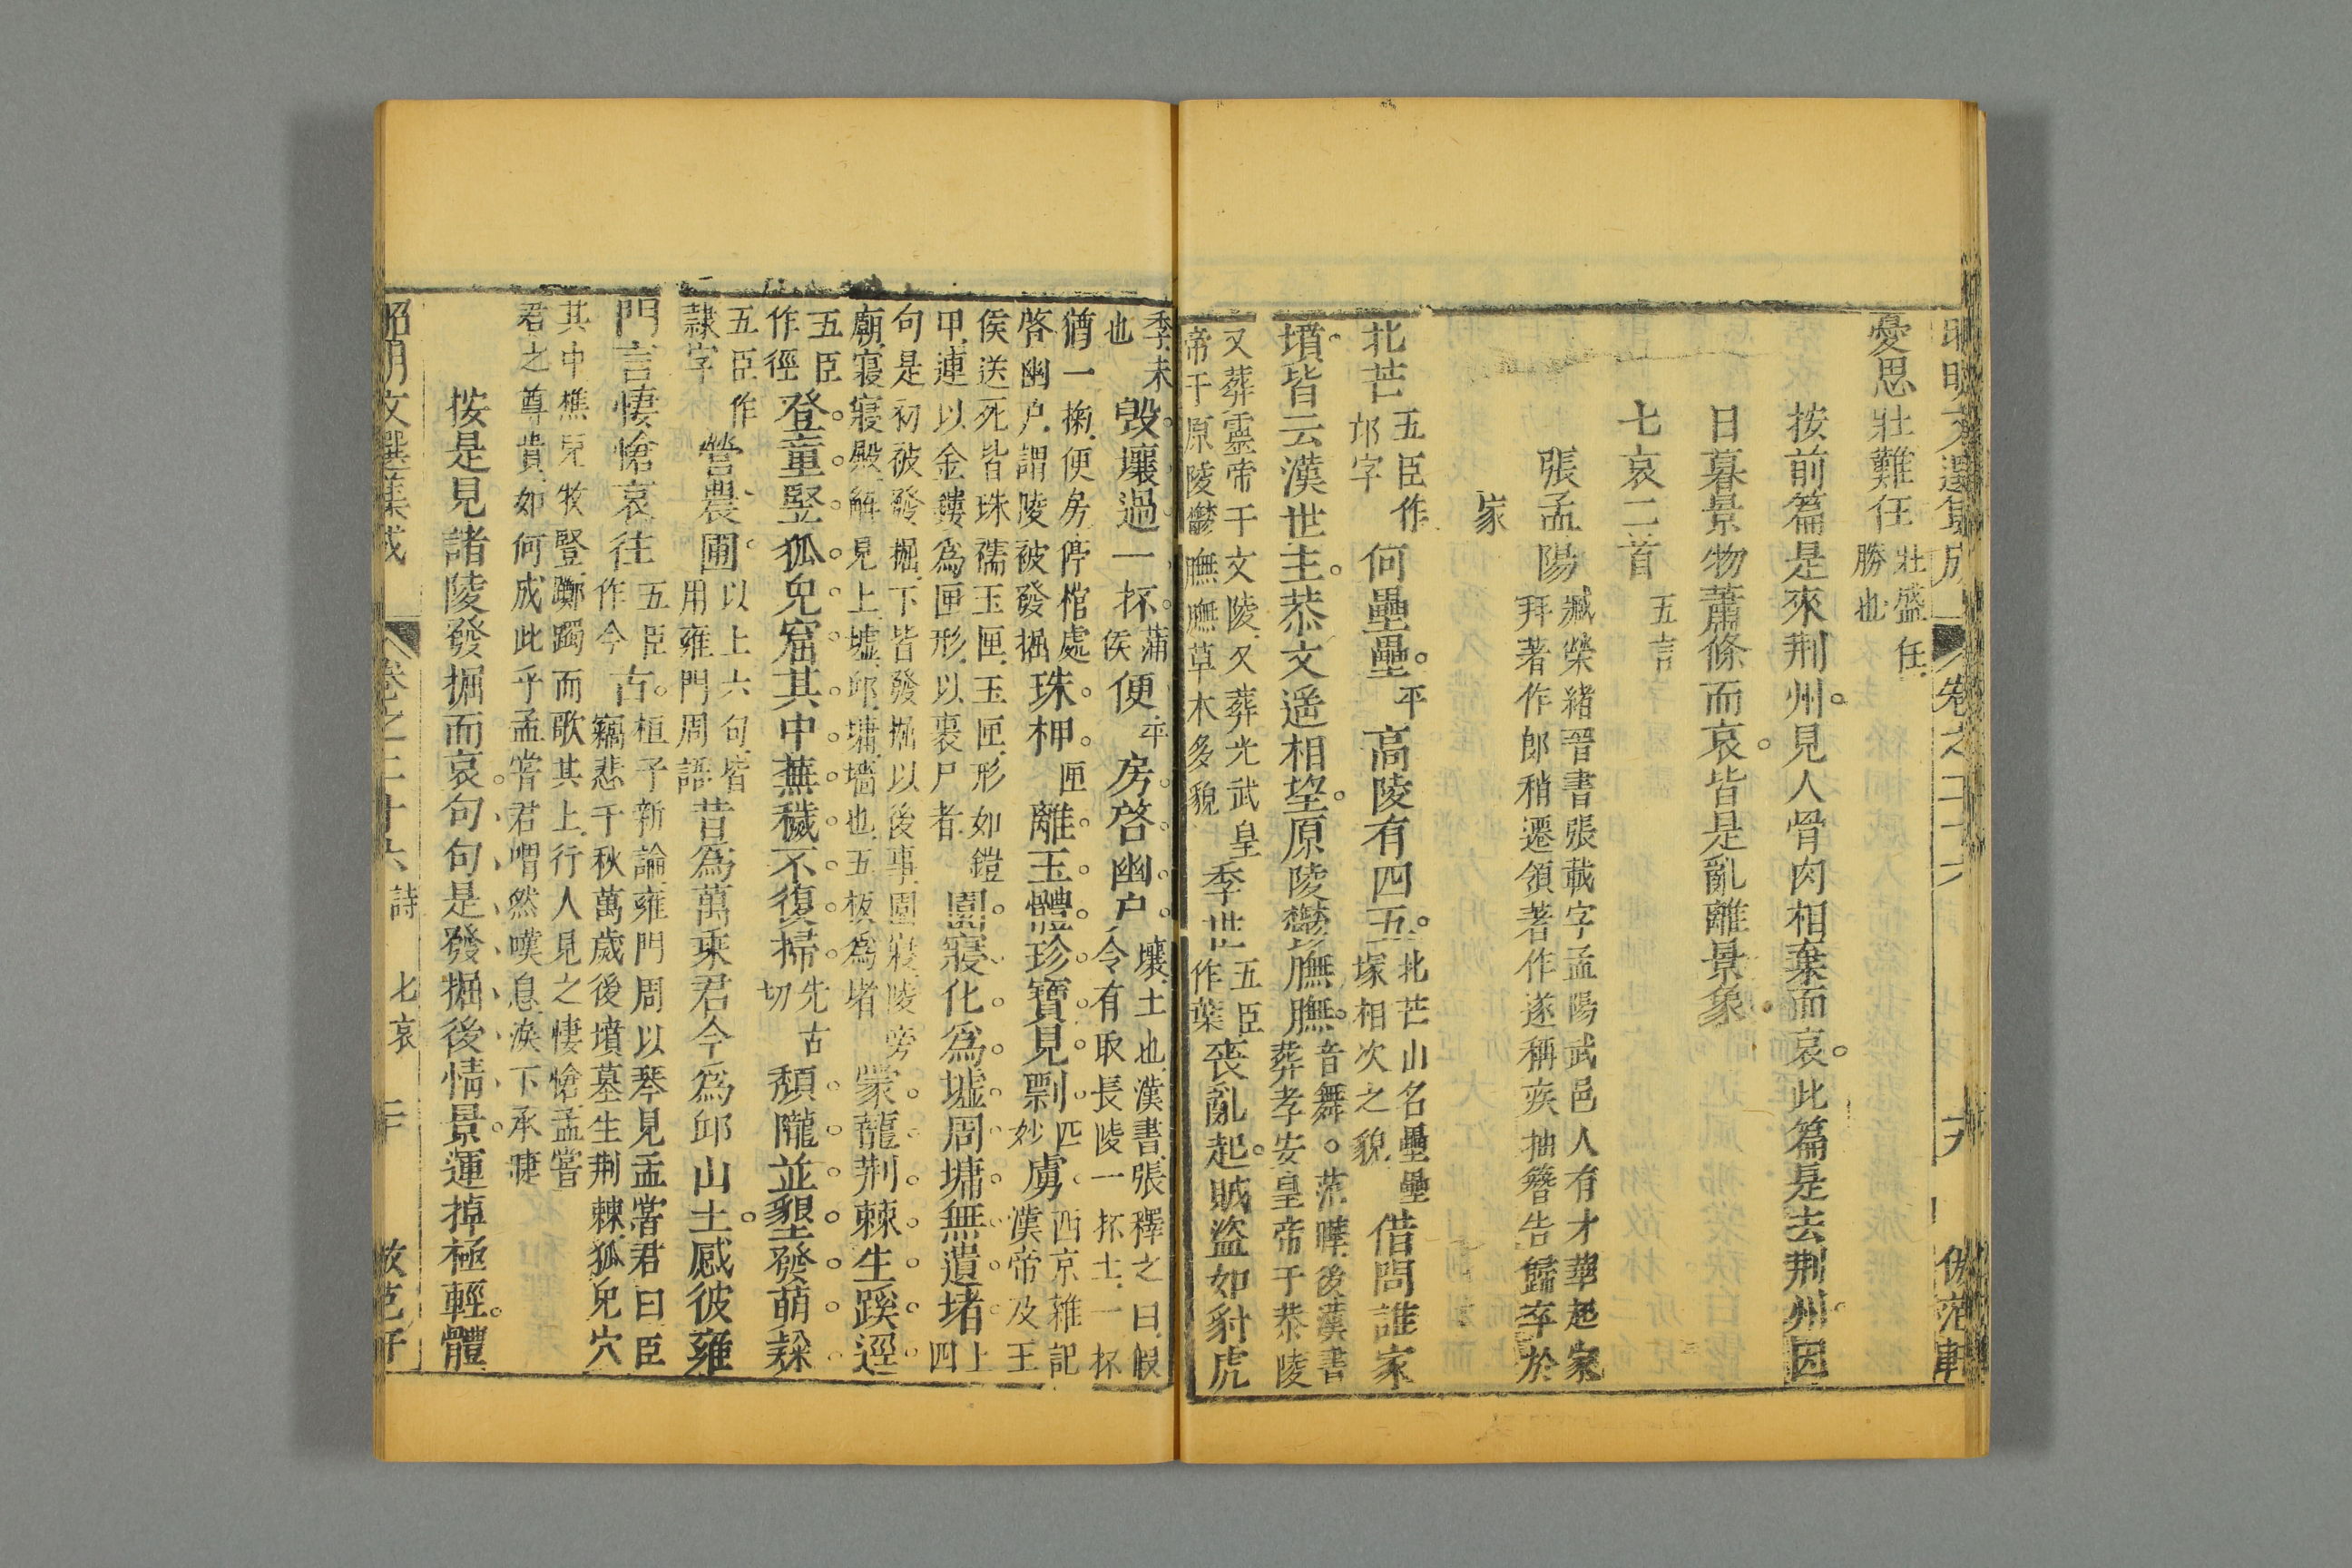 憂思壯難任壯盛任勝也
按前篇是來荆州見人骨肉相棄而哀此篇是去荆州因
日暮景物蕭條而哀皆是亂離景象
七哀二首五言
張孟陽臧榮緒晉書張載字孟陽武邑人有才華起家拜著作郎稍遷領著作遂稱疾抽簪告歸卒於
家
北芒五臣作邙字何壘壘平高陵有四五北芒山名壘壘塚相次之貌借問誰家
墳皆云漢世主恭文遥相望原陵鬱膴膴音舞范曄後漢書葬孝安皇帝于恭陵
又葬靈帝于文陵又葬光武皇帝于原陵鬱膴膴草木多貌季世五臣作葉喪亂起賊盗如豺虎
季末也毁壤過一抔蒲侯便平房啓幽户壤土也漢書張釋之曰假令有取長陵一抔土一抔
猶一掬便房停棺處啓幽户謂陵被發掘珠柙匣離玉體珍寶見剽匹妙虜西京雜記漢帝及王
侯送死皆珠襦玉匣玉匣形如鎧甲連以金鏤爲匣形以裹尸者園寢化爲墟周墉無遺堵上四
句是初被發掘下皆發掘以後事園寢陵旁廟寢寢殿解見上墟邱墉墻也五板爲堵蒙蘢荆棘生蹊逕
五臣作徑登童竪狐兔窟其中蕪穢不復掃先古切頹隴並墾發萌穟
五臣作隷字營農圃以上六句皆用雍門周語昔爲萬乘君今爲邱山土感彼雍
門言悽愴哀往五臣作今古桓子新論雍門周以琴見孟嘗君曰臣竊悲千秋萬歲後墳墓生荆棘狐兔穴
其中樵兒牧豎躑躅而歌其上行人見之悽愴孟嘗君之尊貴如何成此乎孟嘗君喟然嘆息淚下承睫
按是見諸陵發掘而哀句句是發掘後情景運掉極輕體
昭明文選集成 卷之二十六 詩 七哀